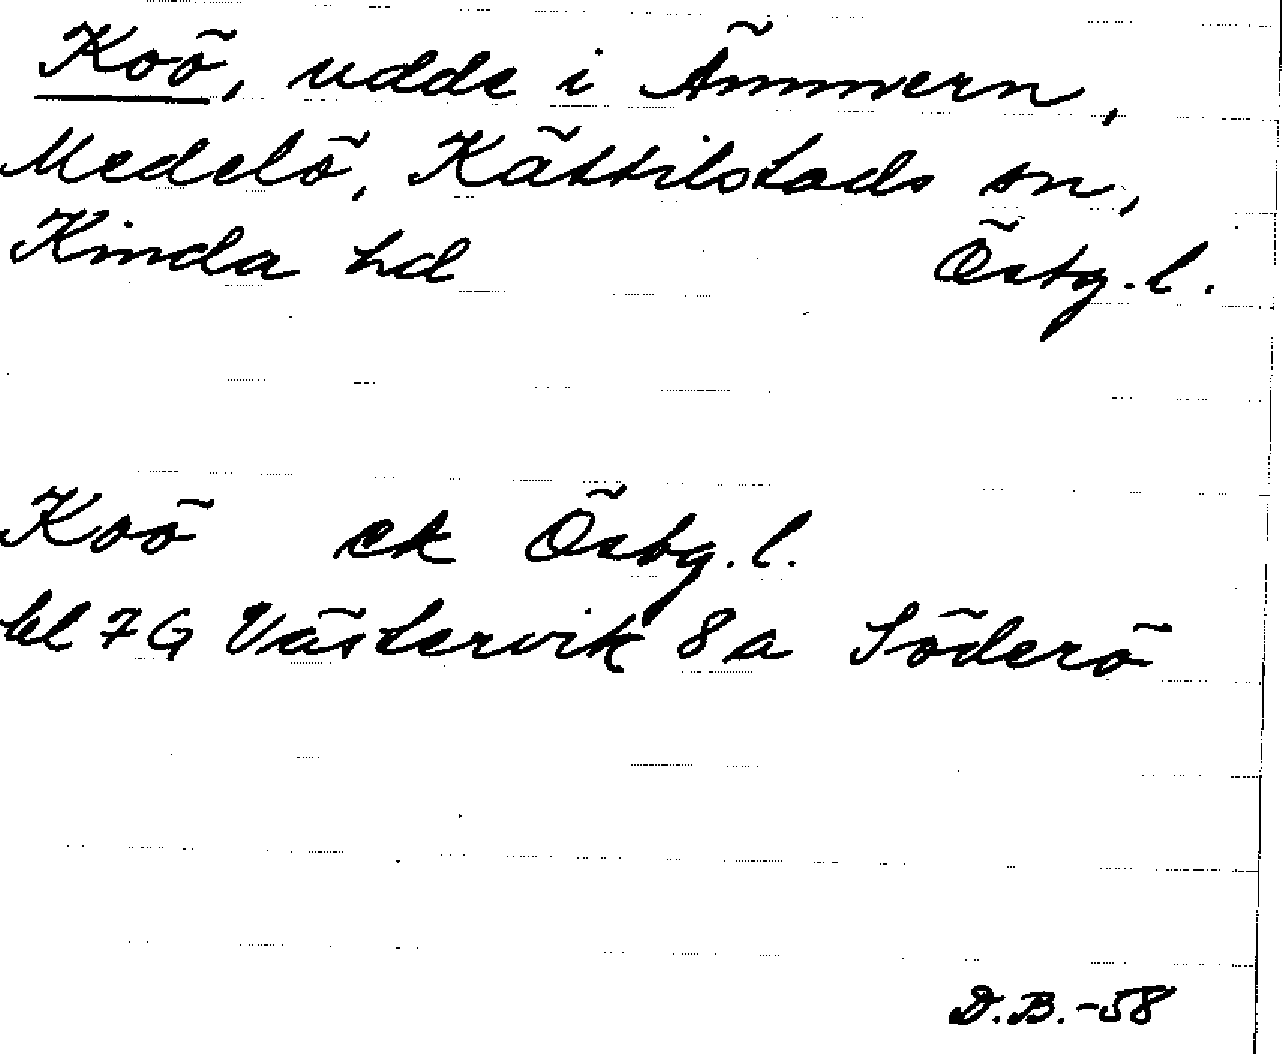 Koö, udde i Ämmern,
Medelö, Kättilstads sn,
Kinda hd Östg.l.
Koö ek Östg.l.
bl 7G Västervik 8a Söderö
D.B.-58